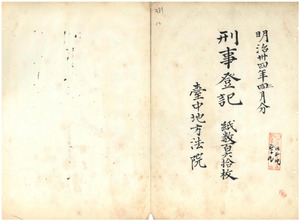 明治卅四年四月分
刑事登記 紙数百六拾枚
臺中地方法院